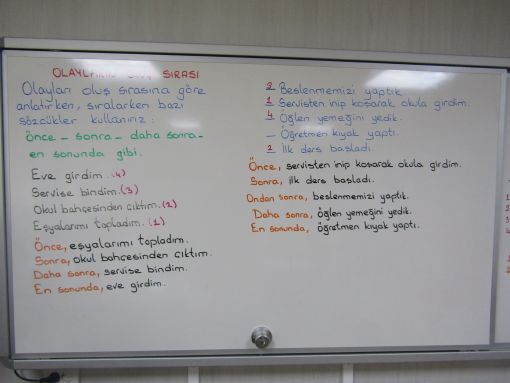 OLAYLARIN OLUŞ SIRASI
Olayları oluş sırasına göre
anlatırken, sıralarken bazı
sözcükler kullanırız:
önce - sonra - daha sonra -
en sonunda gibi.
Eve girdim. (4)
Servise bindim. (3)
Okul bahçesinden çıktım. (2)
Eşyalarımı topladım. (1)
Önce, eşyalarımı topladım.
Sonra, okul bahçesinden çıktım.
Daha sonra, servise bindim.
En sonunda, eve girdim.
Beslenmemizi yaptık
1 Servisten inip koşarak okula girdim.
4 Öğlen yemeğini yedik.
Öğretmen kıyak yaptı.
2 İlk ders başladı.
Önce, servisten inip koşarak okula girdim.
Sonra, ilk ders başladı.
Ondan sonra, beslenmemizi yaptık.
Daha sonra, öğlen yemeğini yedik.
En sonunda, öğretmen kıyak yaptı.